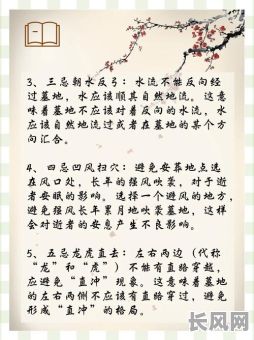 3、三忌朝水反弓：水流不能反向经
过墓地，水应该顺其自然地流。这意
味着墓地不应该对着反向的水流，水
应该自然地流过或者在墓地的某个方
向汇合。
4、四忌凹风扫穴：避免安葬地点选
在风口处，长年的强风吹袭，对于逝
者安眠的影响。选择一个避风的地方，
避免强风长年累月地吹袭墓地，这样
会对逝者的安息产生不良影响。
5、五忌龙虎直去：左右两边（代称
“龙”和“虎”）不能有直路穿越，
应避免“直冲”现象。这意味着墓地
的左右两侧不应该有直路穿过，避免
形成“直冲”的格局。
长风网